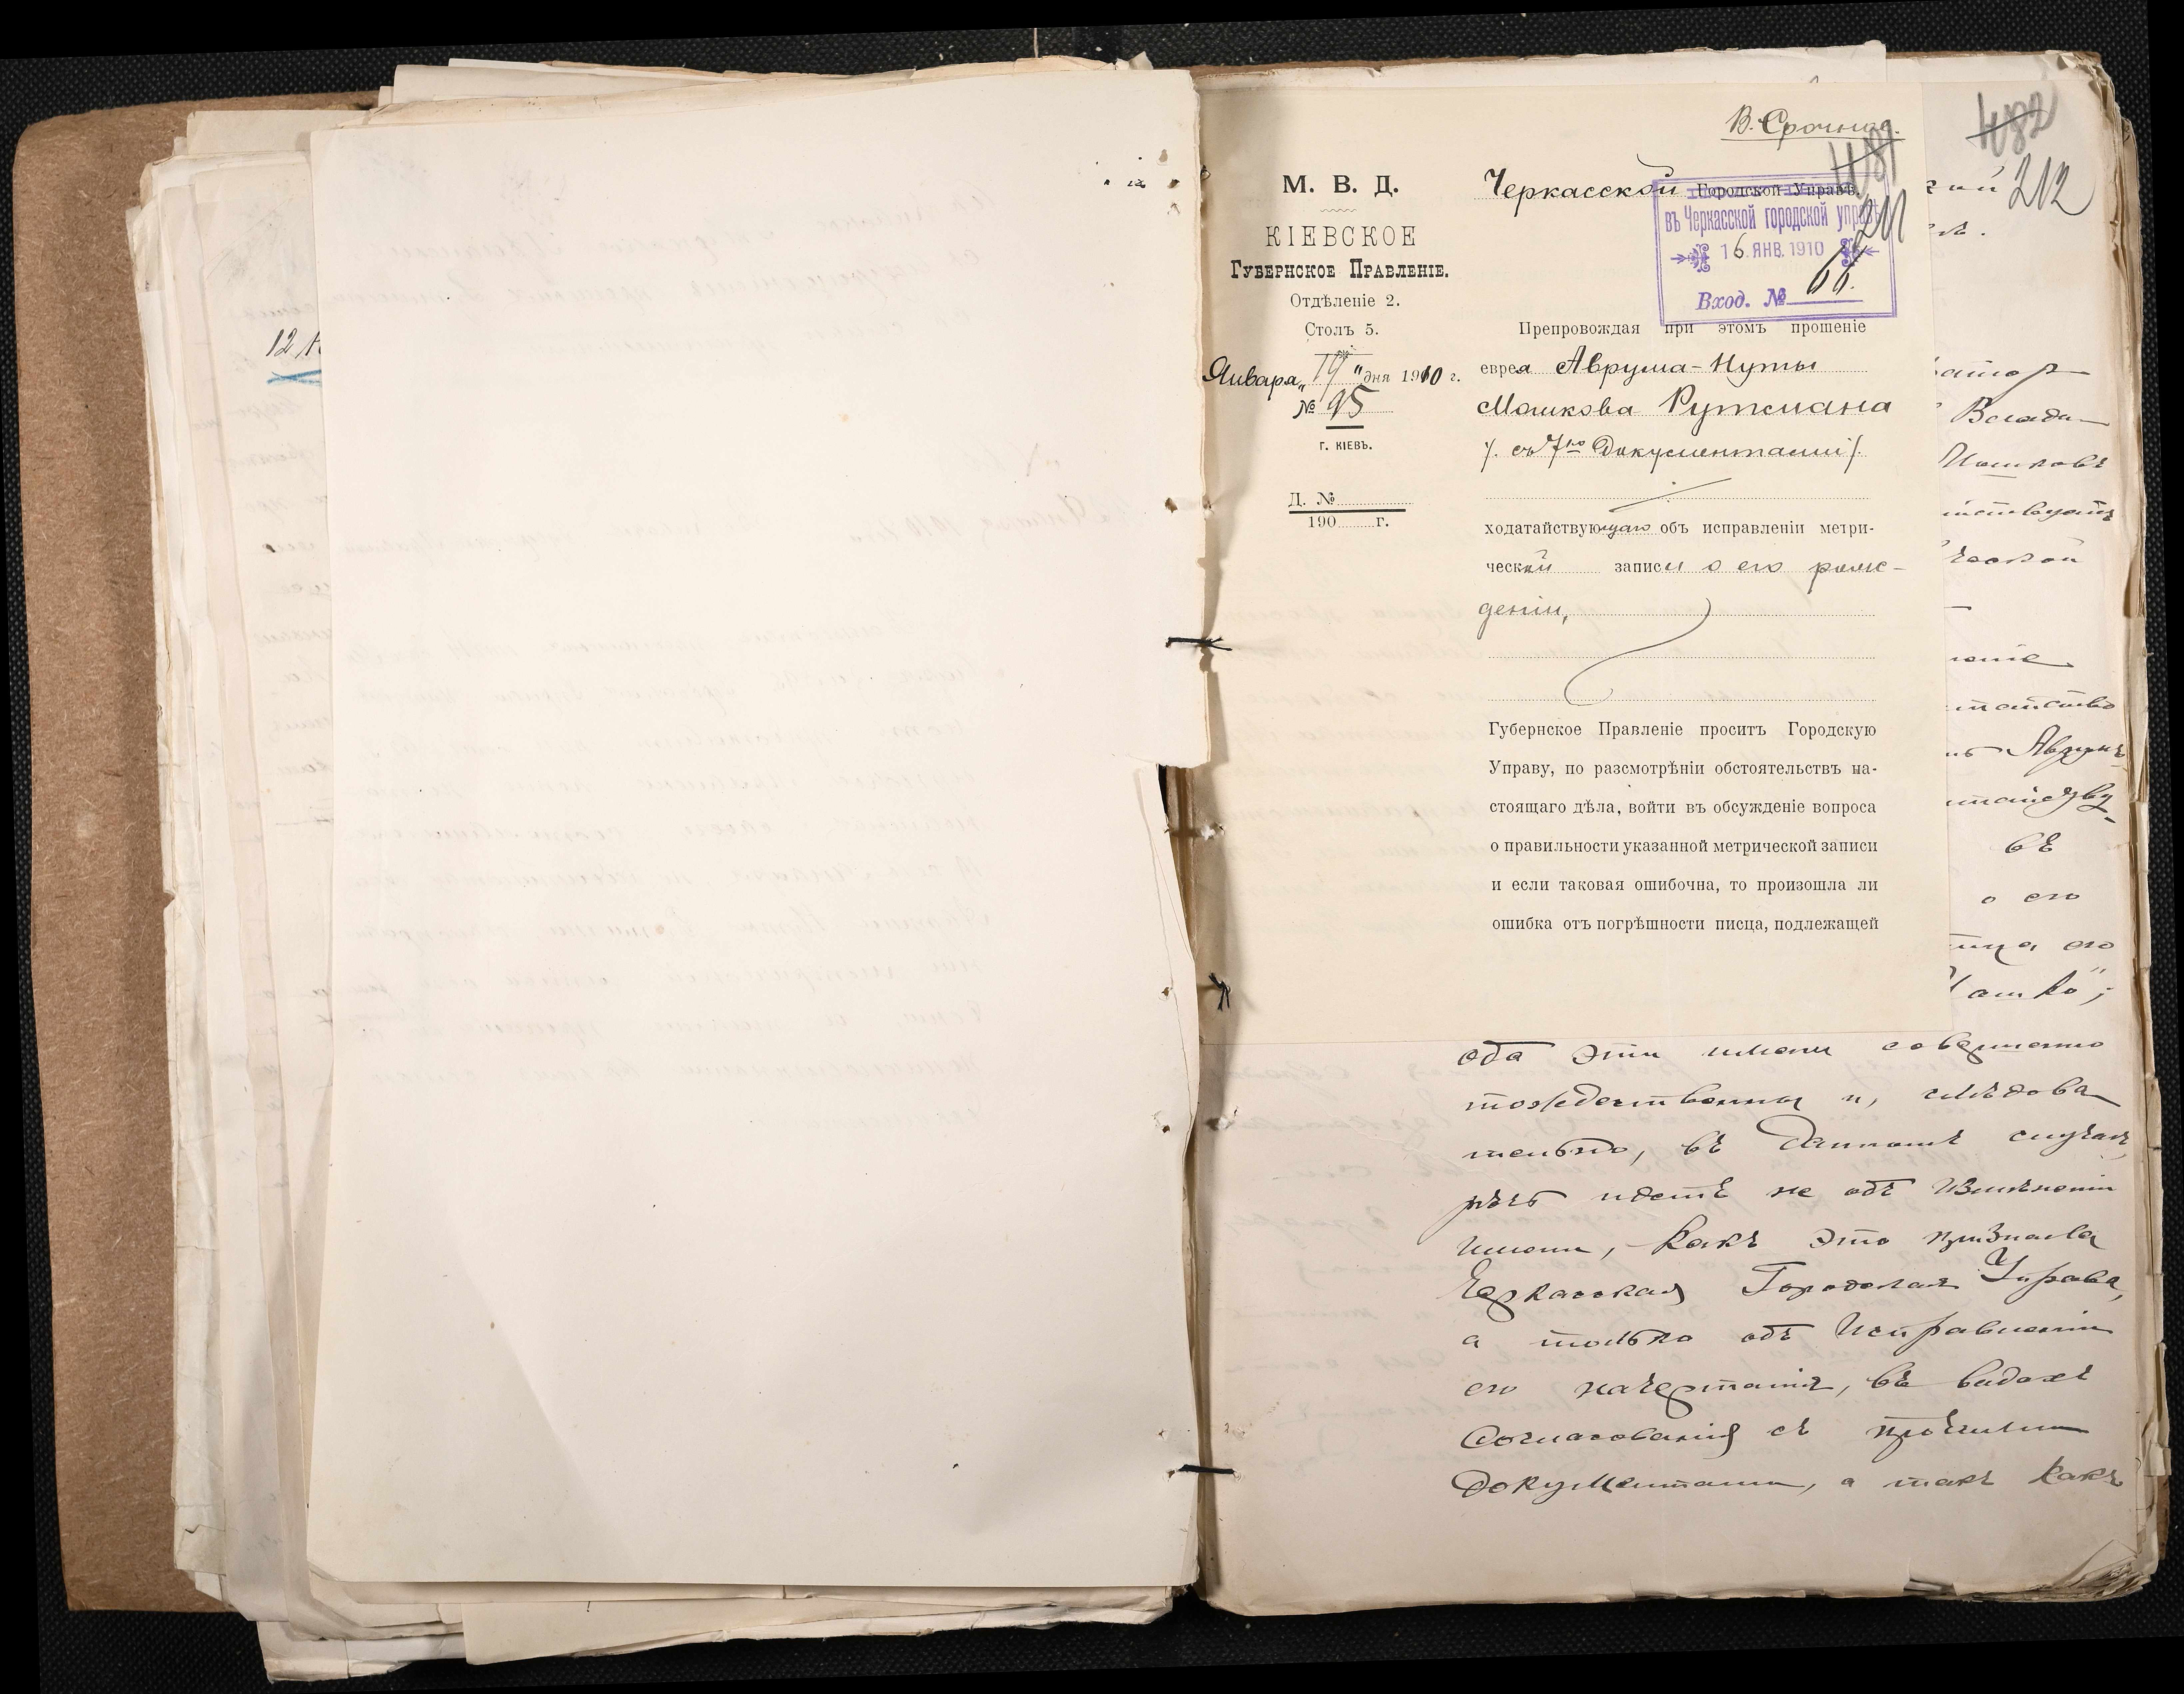 12
В. Срочное.
481
482
211
212
М. В. Д.
КІЕВСКОЕ
Губернское Правленіе.
Отдѣленіе 2.
Столъ 5.
Января „14" дня 1910 г.
№ 95
г. КІЕВЪ.
Д. №
190 г.
Черкасской Городской Управѣ.
въ Черкасской городской управѣ
16 ЯНВ. 1910
Вход. № 66.
Препровождая при этомъ прошеніе
еврея Аврума-Нуты
Мошкова Рутмана
/. съ 7ю документами /.
ходатайствующаго объ исправленіи метри-
ческой записи о его рож-
деніи,
Губернское Правленіе проситъ Городскую
Управу, по разсмотрѣніи обстоятельствъ на-
стоящаго дѣла, войти въ обсужденіе вопроса
о правильности указанной метрической записи
и если таковая ошибочна, то произошла ли
ошибка отъ погрѣшности писца, подлежащей
въ
о его
его
оба эти имени совершенно
тождественны и, слѣдова
тельно, въ данномъ случаѣ,
рѣчь идетъ не объ измѣненіи
имени, какъ это признала
Черкасская Городская Управа,
а только объ исправленіи
его начертанія, въ видахъ
согласованія съ прочими
документами, а такъ какъ